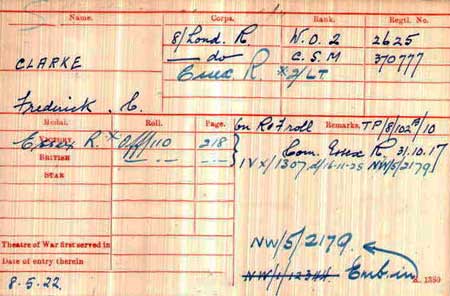 Name. Corps. Rank. Regtl. No.
8/Lond. R. W.O.2 2625
CLARKE — do — C.S.M 370777
Essex R * 2/LT.
Frederick. C.
Medal. Roll. Page. On R of F roll Remarks. TP/8/102B/10
VICTORY Essex R. * Off/110 218 Com. Essex R. 31.10.17
BRITISH — " — — " — IVX/1307 d/16-11-25 NW/5/2179
STAR
NW/5/2179.
Theatre of War first served in
NW/1/12344. Emb. in
Date of entry therein K. 1380
8.5.22